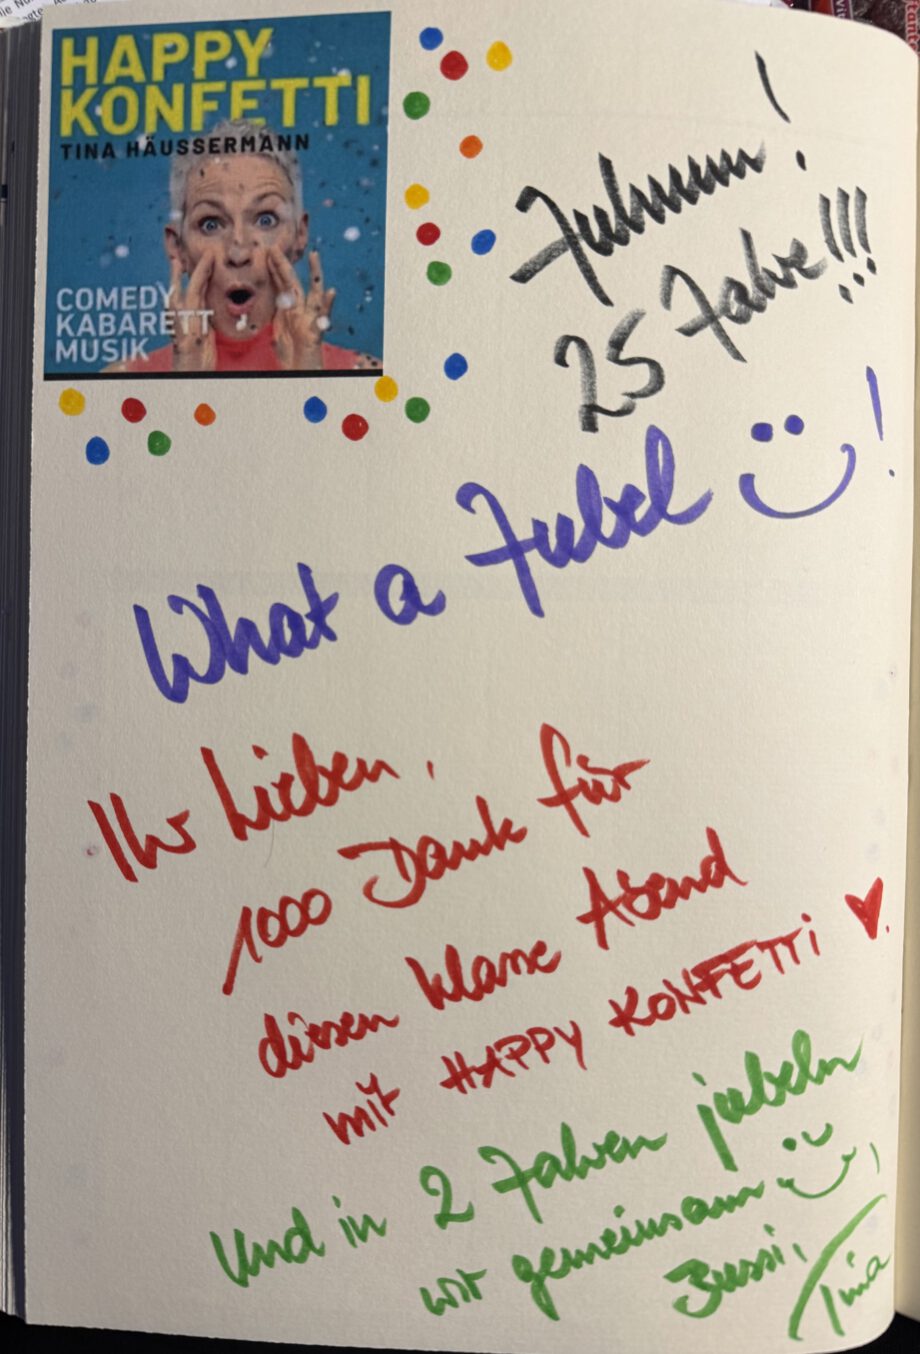 HAPPY
KONFETTI
TINA HÄUSSERMANN
COMEDY
KABARETT
MUSIK
Juhuuu!
25 Jahre!!!
What a Jubel!
Ihr Lieben,
1000 Dank für
diesen klasse Abend
mit HAPPY KONFETTI
Und in 2 Jahren jubeln
wir gemeinsam,
Bussi,
Tina